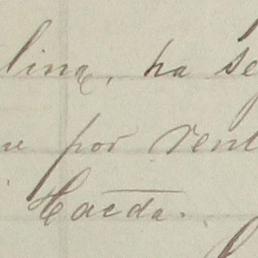 lina, ha se
por vent
Hacda.